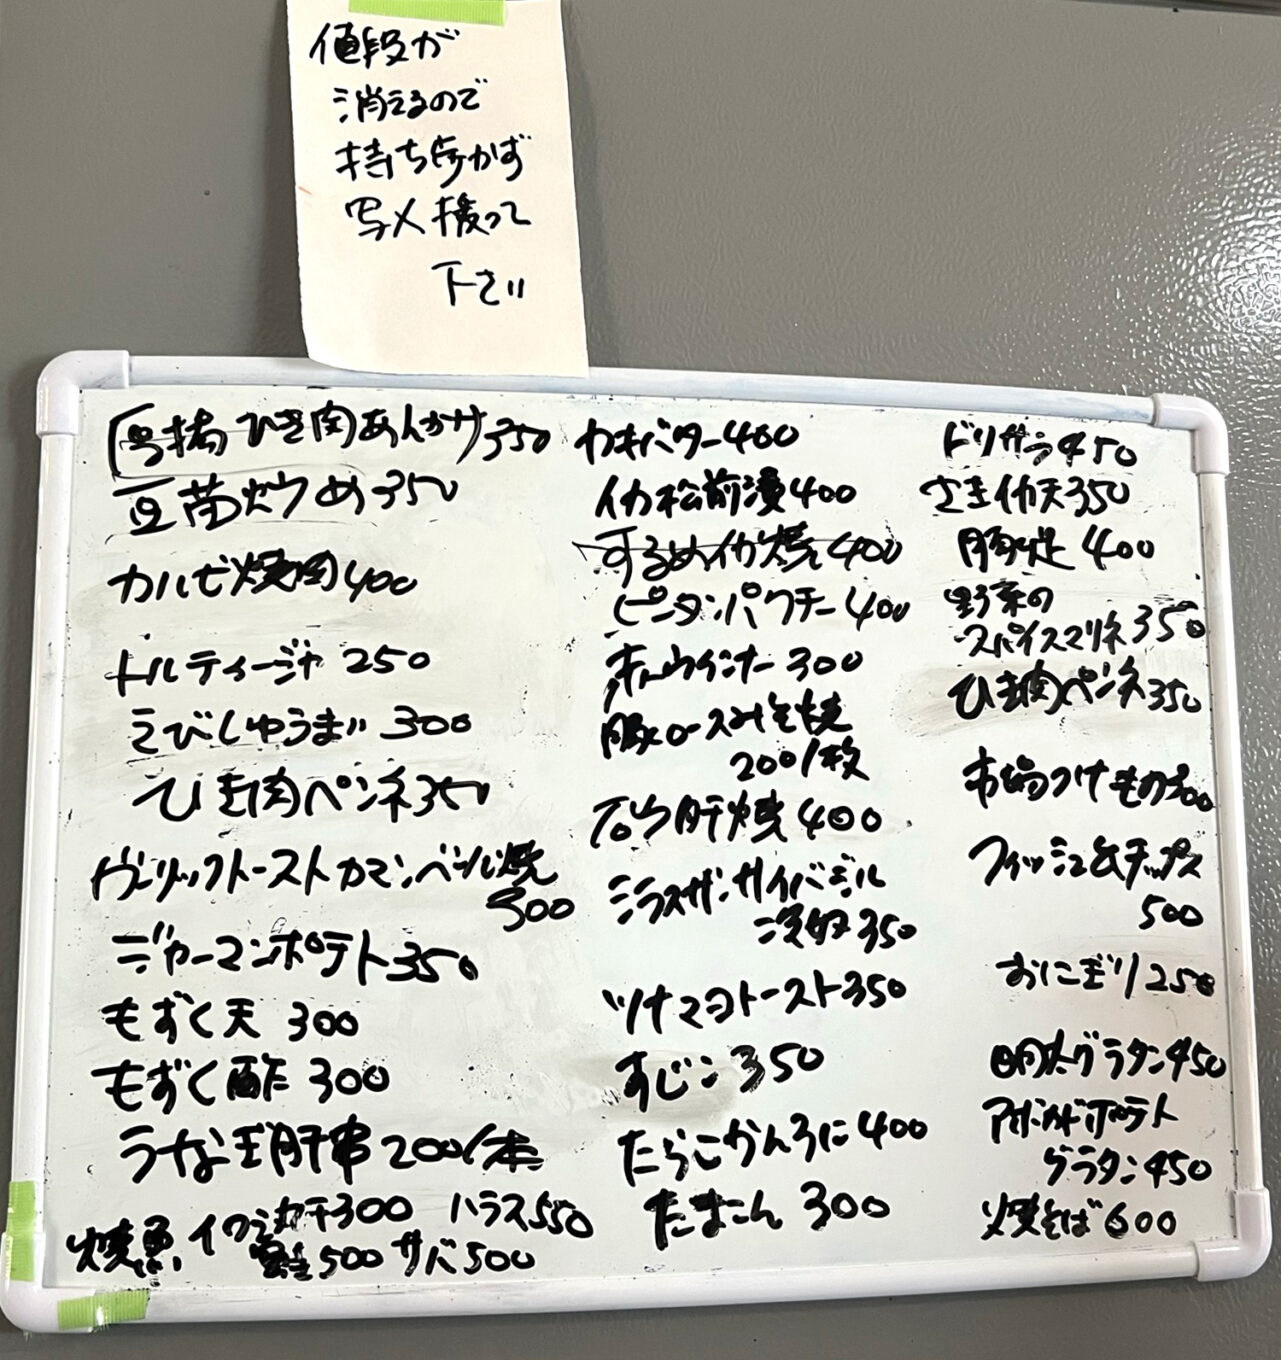 値段が
消えるので
持ち歩かず
写メ撮って
下さい
厚揚ひき肉あんかけ350
豆苗炒め350
カルビ焼肉400
トルティージャ 250
えびしゅうまい 300
ひき肉ペンネ350
ガーリックトーストカマンベール焼
500
ジャーマンポテト350
もずく天 300
もずく酢 300
うなぎ肝串200/本
焼魚 イワシ丸干300 ハラス550
500 サバ500
カキバター400
イカ松前漬400
するめイカ焼400
ピータンパクチー400
赤ウインナー300
豚ロースみそ焼
200/枚
砂肝焼400
シラスザーサイバジル
冷奴350
ツナマヨトースト350
すじこ350
たらこかんろに400
たまこん 300
ドリサラ450
さきイカ天350
豚足400
野菜の
スパイスマリネ350
ひき肉ペンネ350
市場つけもの300
フィッシュ&チップス
500
おにぎり250
明太グラタン450
アボカドポテト
グラタン450
焼そば600